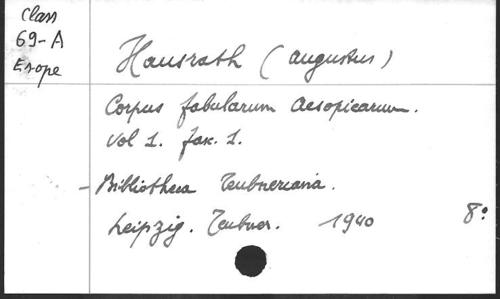 Class
69-A
Esope
Hausrath (Augustus)
Corpus fabularum Aesopicarum.
Vol 1. fasc. 1.
- Bibliotheca Teubneriana.
Leipzig. Teubner. 1940 8°